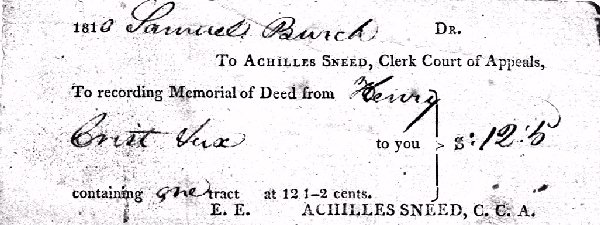 1810 Samuel Burch DR.
To ACHILLES SNEED, Clerk Court of Appeals,
To recording Memorial of Deed from Henry
Crist &ux to you $: 12:5
containing one tract at 12 1-2 cents.
E. E. ACHILLES SNEED, C. C. A.